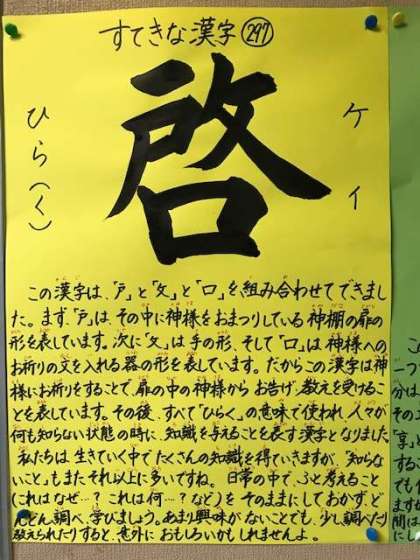 すてきな漢字 297
啓
ケイ
ひら(く)
この漢字は、「戸」と「攵」と「口」を組み合わせてできまし
た。まず「戸」は、その中に神様をおまつりしている神棚の扉の
形を表しています。次に「攵」は手の形、そして「口」は神様への
お祈りの文を入れる器の形を表しています。だからこの漢字は神
様にお祈りをすることで、扉の中の神様からお告げ、教えを受けるこ
とを表しています。その後、すべて「ひらく」の意味で使われ、人々が
何も知らない状態の時に、知識を与えることを表す漢字となりました。
私たちは、生きていく中でたくさんの知識を得ていきますが、「知らな
い」こと」もまたそれ以上に多いですね。日常の中で、ふと考えること
(これはなぜ…？これは何…？など)をそのままにしておかず、ど
んどん調べ、学びましょう。あまり興味がないことでも、少し調べたり
教えられたりすると、意外におもしろいかもしれませんよ。